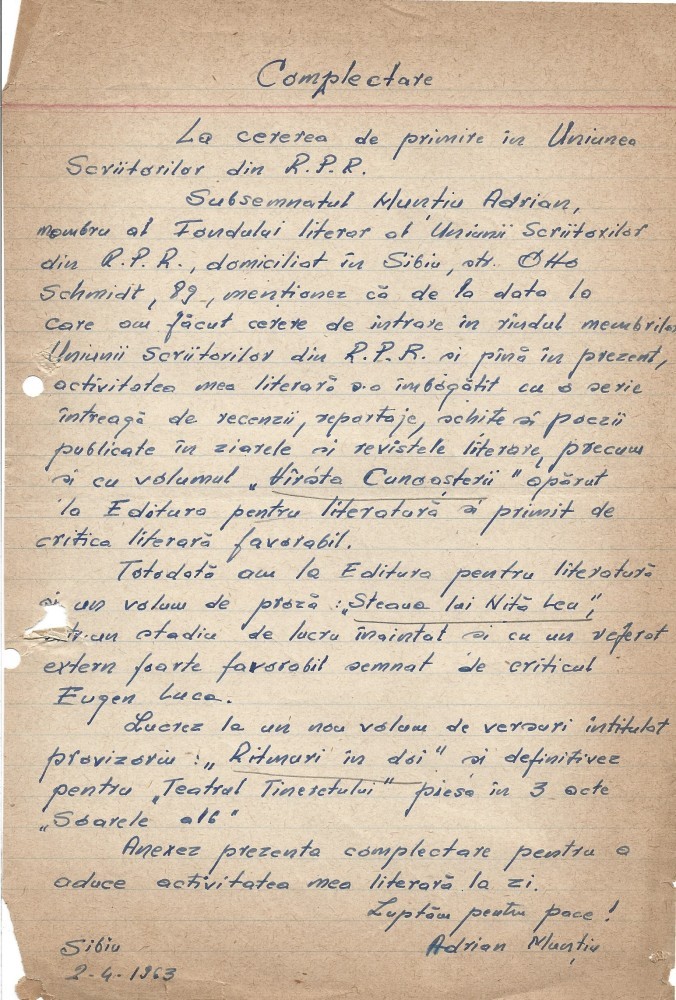 Complectare
La cererea de primire în Uniunea
Scriitorilor din R.P.R.
Subsemnatul Munțiu Adrian,
membru al Fondului literar al Uniunii Scriitorilor
din R.P.R., domiciliat în Sibiu, str. Otto
Schmidt, 89, menționez că de la data la
care am făcut cerere de intrare în rîndul membrilor
Uniunii Scriitorilor din R.P.R. și pînă în prezent,
activitatea mea literară s-a îmbogățit cu o serie
întreagă de recenzii, reportaje, schițe și poezii
publicate în ziarele și revistele literare, precum
și cu volumul „Hîrsta Cunoașterii" apărut
la Editura pentru literatură și primit de
critica literară favorabil.
Totodată am la Editura pentru literatură
și un volum de proză: „Steaua lui Niță Leu",
într-un stadiu de lucru înaintat și cu un referat
extern foarte favorabil semnat de criticul
Eugen Luca.
Lucrez la un nou volum de versuri intitulat
provizoriu: „Ritmuri în doi" și definitivez
pentru „Teatrul Tineretului" piesa în 3 acte
„Soarele alb"
Anexez prezenta complectare pentru a
aduce activitatea mea literară la zi.
Luptăm pentru pace!
Sibiu Adrian Munțiu
2-4-1963